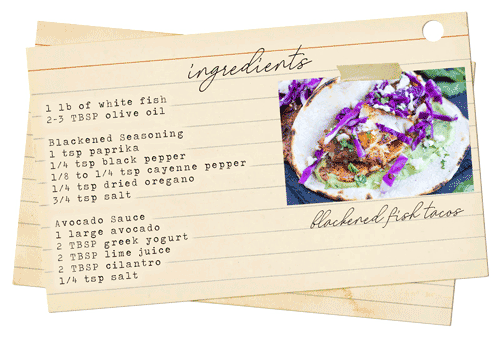 ingredients
1 lb of white fish
2-3 TBSP olive oil
Blackened Seasoning
1 tsp paprika
1/4 tsp black pepper
1/8 to 1/4 tsp cayenne pepper
1/4 tsp dried oregano
3/4 tsp salt
Avocado Sauce
1 large avocado
2 TBSP greek yogurt
2 TBSP lime juice
2 TBSP cilantro
1/4 tsp salt
blackened fish tacos